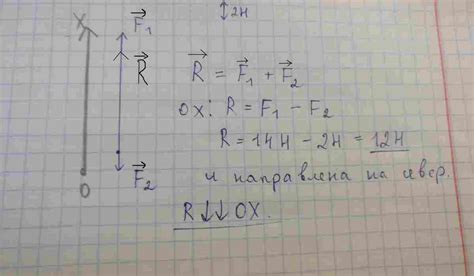 2Н
X
F⃗₁
R⃗
F⃗₂
O
R⃗ = F⃗₁ + F⃗₂
ОХ: R = F₁ − F₂
R = 14Н − 2Н = 12Н
и направлена на север.
R↓↓ OX.